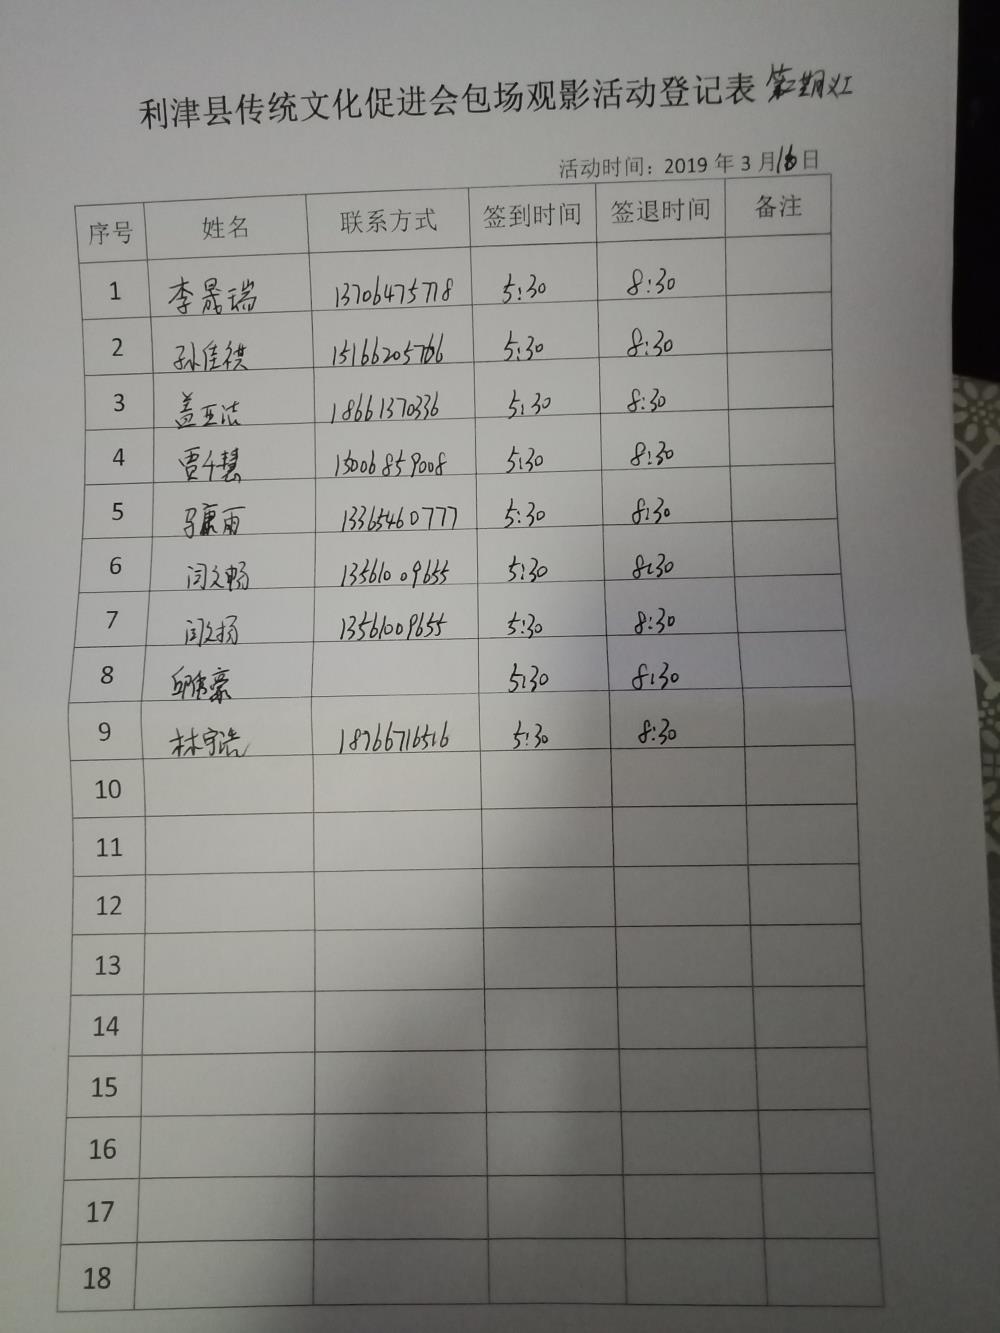 利津县传统文化促进会包场观影活动登记表 第二期义工
活动时间：2019 年 3 月16日
序号 姓名 联系方式 签到时间 签退时间 备注
1 李晟瑞 13706475778 5:30 8:30
2 孙佳祺 15166205766 5:30 8:30
3 盖亚洁 18661370336 5:30 8:30
4 贾千慧 15006859008 5:30 8:30
5 马康雨 13365460777 5:30 8:30
6 闫文畅 13561009655 5:30 8:30
7 闫文扬 13561009655 5:30 8:30
8 邱伟豪 5:30 8:30
9 林宇浩 18766716516 5:30 8:30
10
11
12
13
14
15
16
17
18